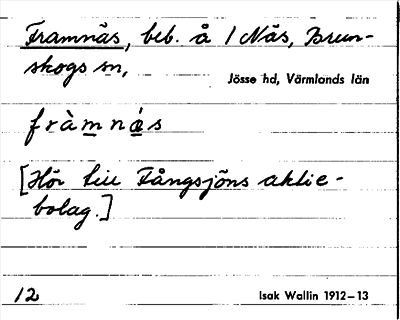 Framnäs, beb. å 1 Näs, Brun-
skogs sn,
Jösse hd, Värmlands län
fràmnás
[Hör till Fångsjöns aktie-
bolag.]
12
Isak Wallin 1912–13